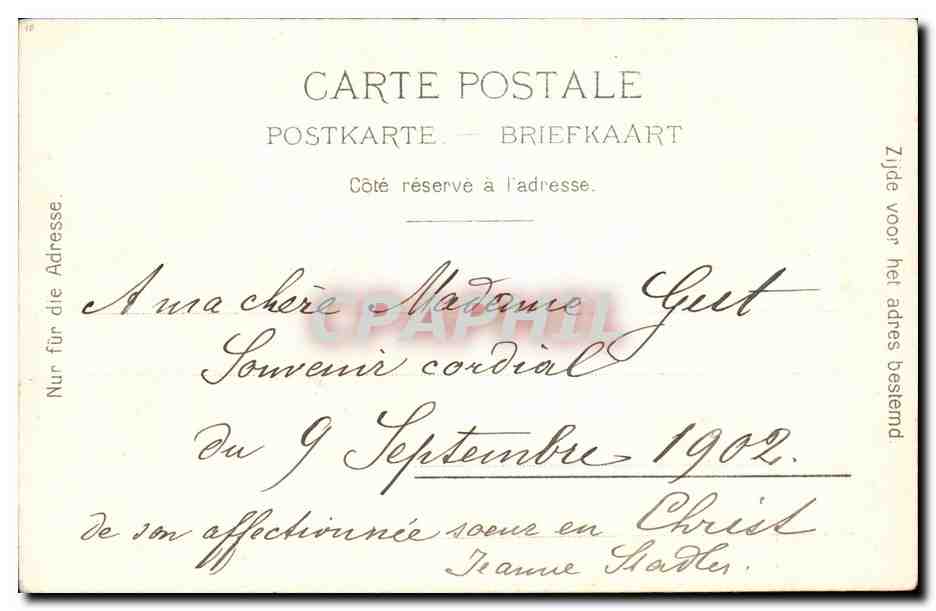 10
CARTE POSTALE
POSTKARTE. — BRIEFKAART
Côté réservé à l'adresse.
Nur für die Adresse.
Zijde voor het adres bestemd.
A ma chère Madame
CPAPHIL
Souvenir cordial
du 9 Septembre 1902.
de son affectionnée soeur en Christ
Jeanne Stadler.